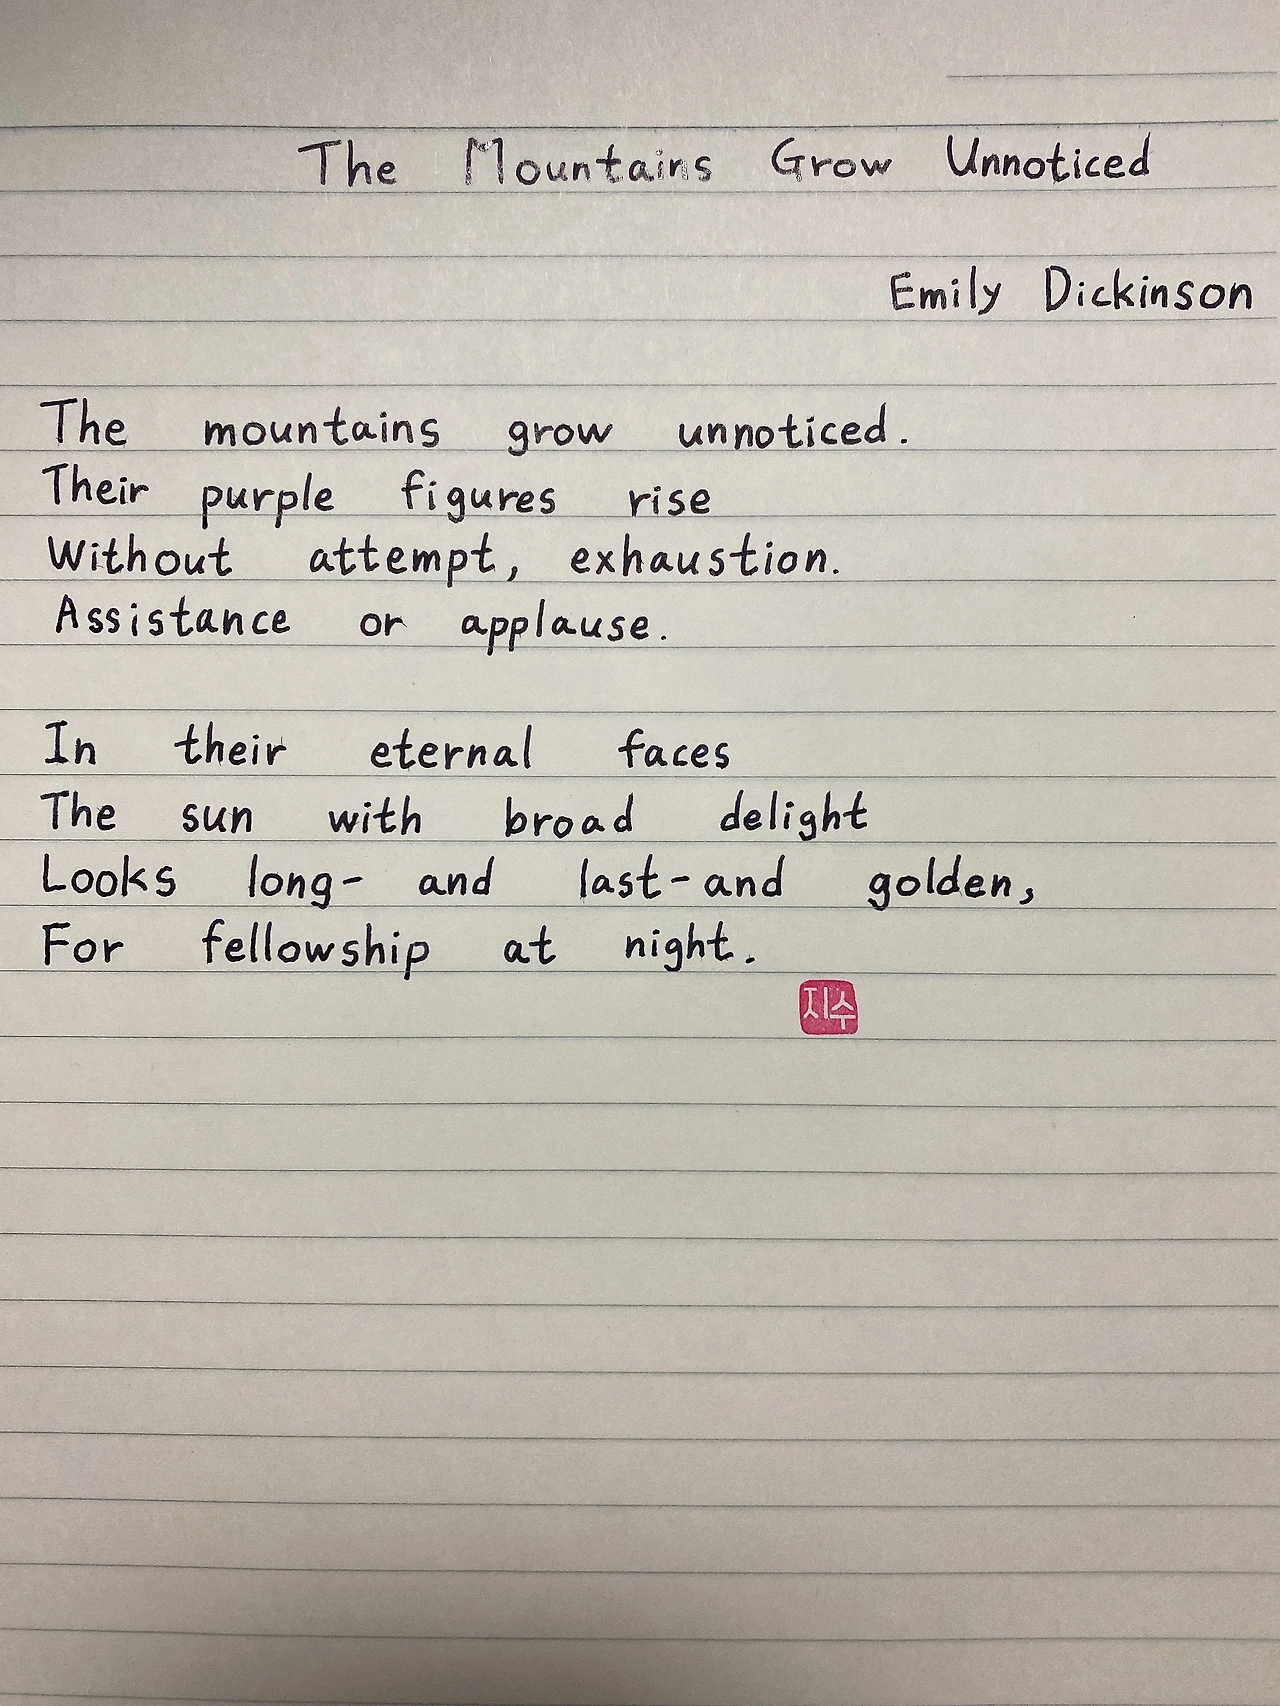 The Mountains Grow Unnoticed
Emily Dickinson
The mountains grow unnoticed.
Their purple figures rise
Without attempt, exhaustion.
Assistance or applause.
In their eternal faces
The sun with broad delight
Looks long- and last-and golden,
For fellowship at night.
지수